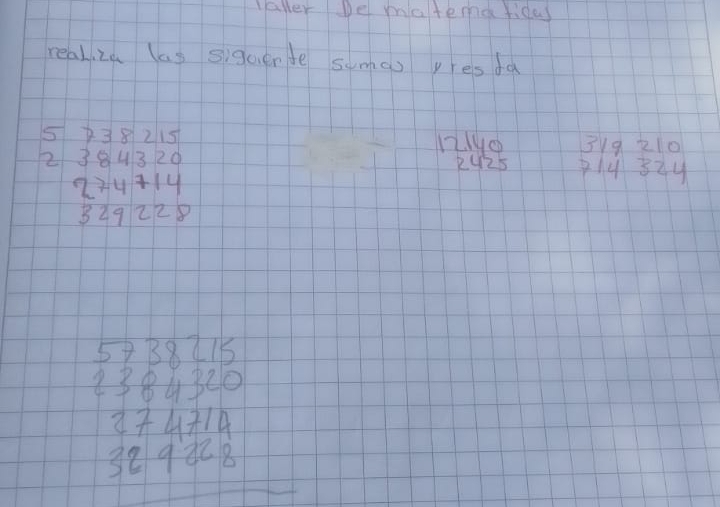 Taller De matematicas
realiza las siguiente sumas y resta
5 738 215
2 384320
274714
329228
12140
2425
319 210
714 324
5738215
2384320
274714
329228